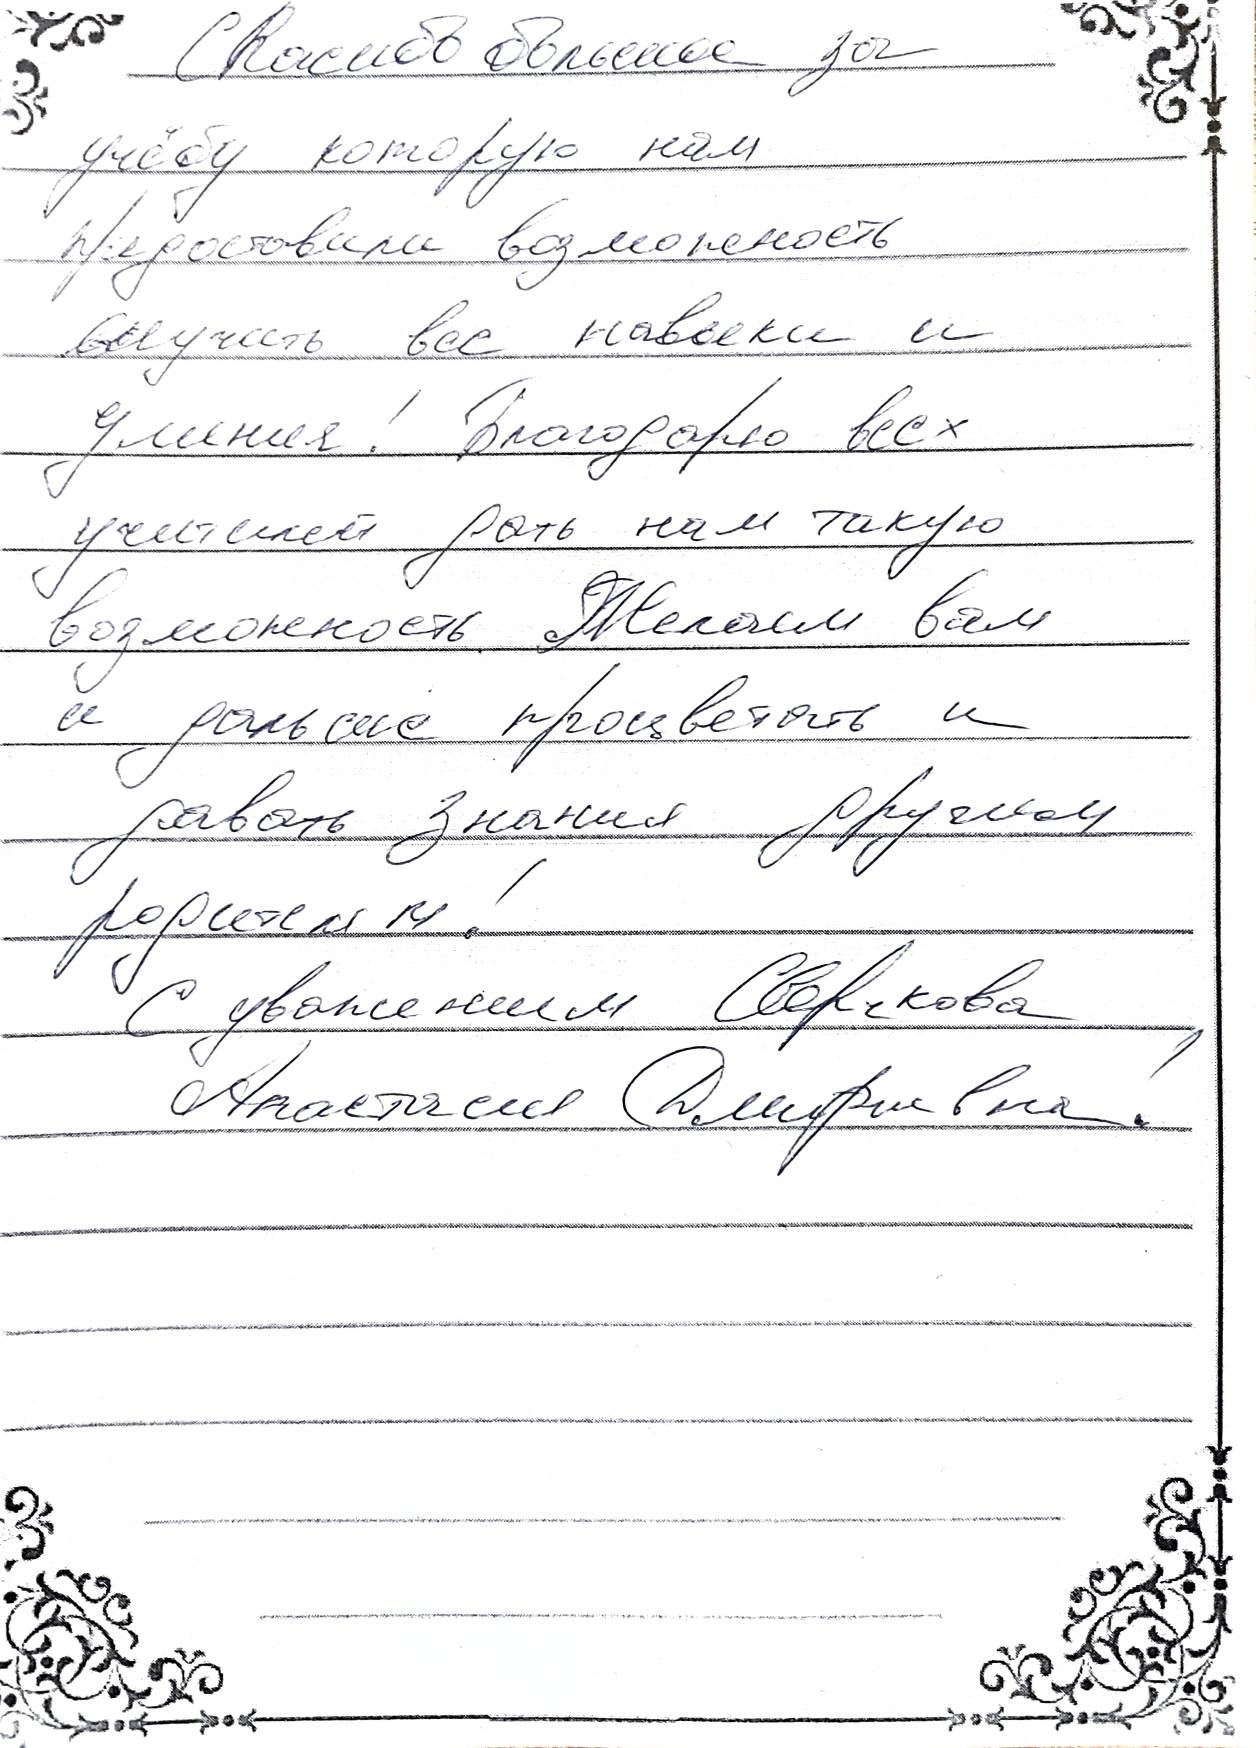 Спасибо большое за
учёбу которую нам
предоставили возможность
выучить все навыки и
умения! Благодарю всех
учителей дать нам такую
возможность. Желаем вам
и дальше процветать и
давать знания другим
родителям!
С уважением Сверчкова
Анастасия Дмитриевна!